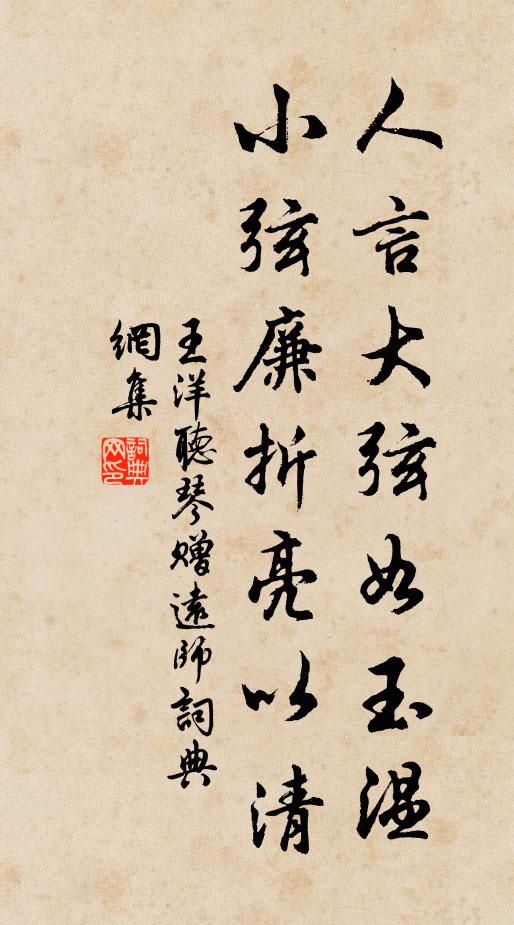 人言大弦如玉温
小弦廉折亮以清
王洋聽琴贈遠師詞典
網集
詞典
网印